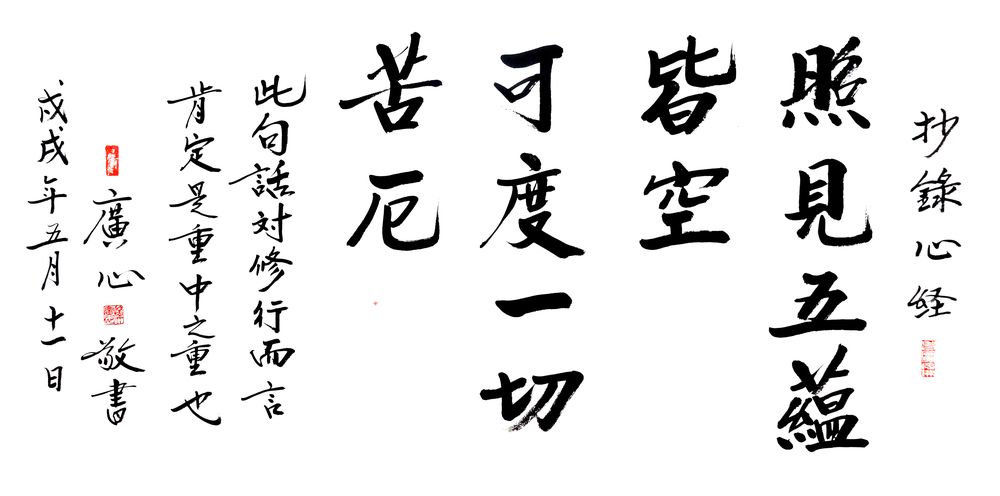 抄錄心経
照見五蘊
皆空
可度一切
苦厄
此句話対修行而言
肯定是重中之重也
廣心敬書
戊戌年五月十一日